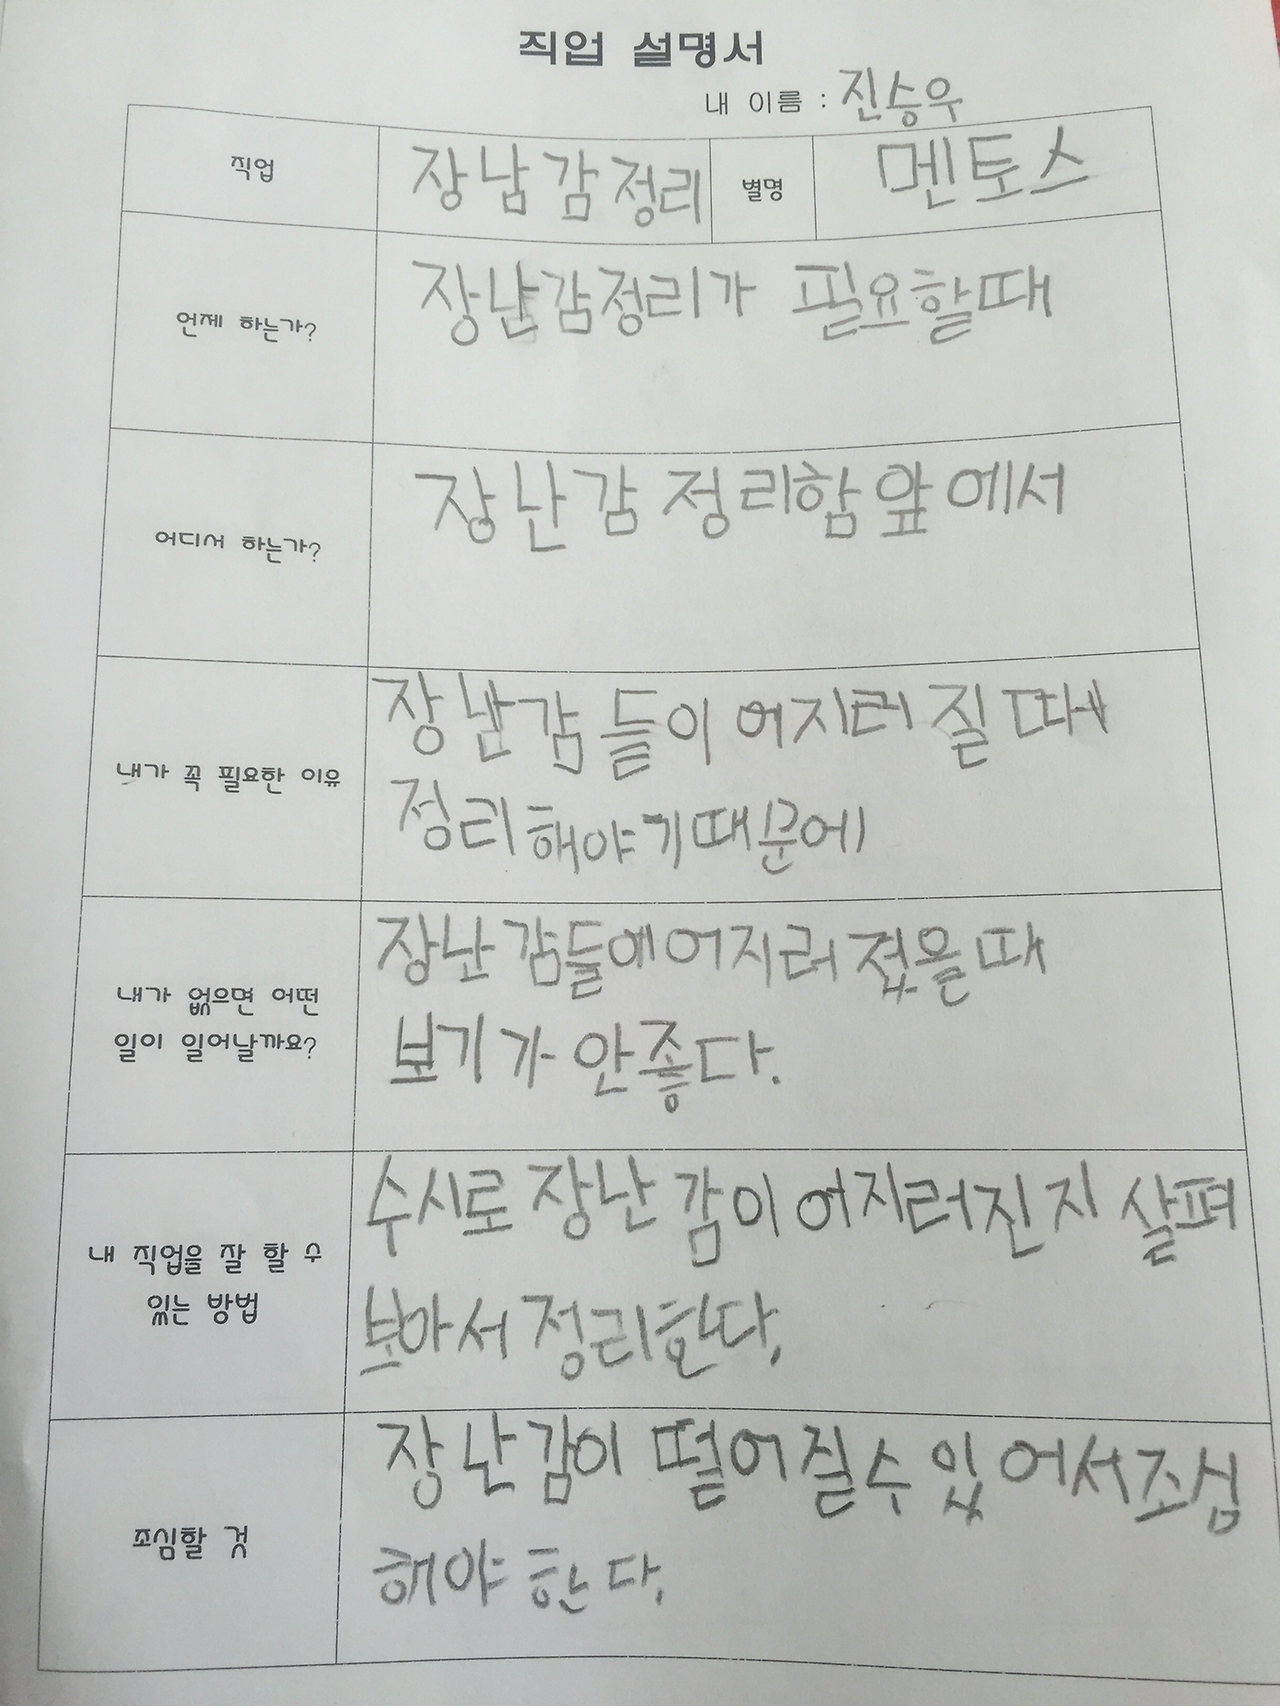 직업 설명서
내 이름 : 진승우
직업 장남감정리 별명 멘토스
언제 하는가? 장난감정리가 필요할때
어디서 하는가? 장난감 정리함 앞에서
내가 꼭 필요한 이유
장난감들이 어지러질때
정리해야기때문에
내가 없으면 어떤
일이 일어날까요?
장난감들에어지러졌을때
보기가 안좋다.
내 직업을 잘 할 수
있는 방법
수시로 장난감이 어지러진지 살펴
보아서 정리한다.
조심할 것
장난감이 떨어질수있어서조심
해야한다.